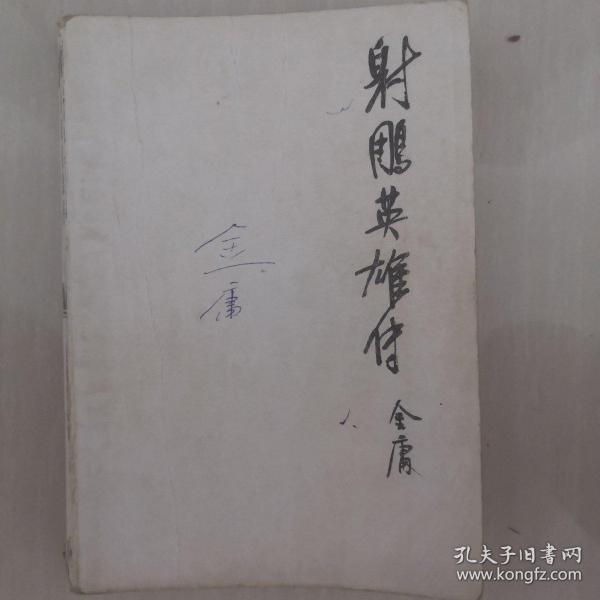 射鵰英雄传
金庸
金庸
孔夫子旧书网
www.kongfz.com